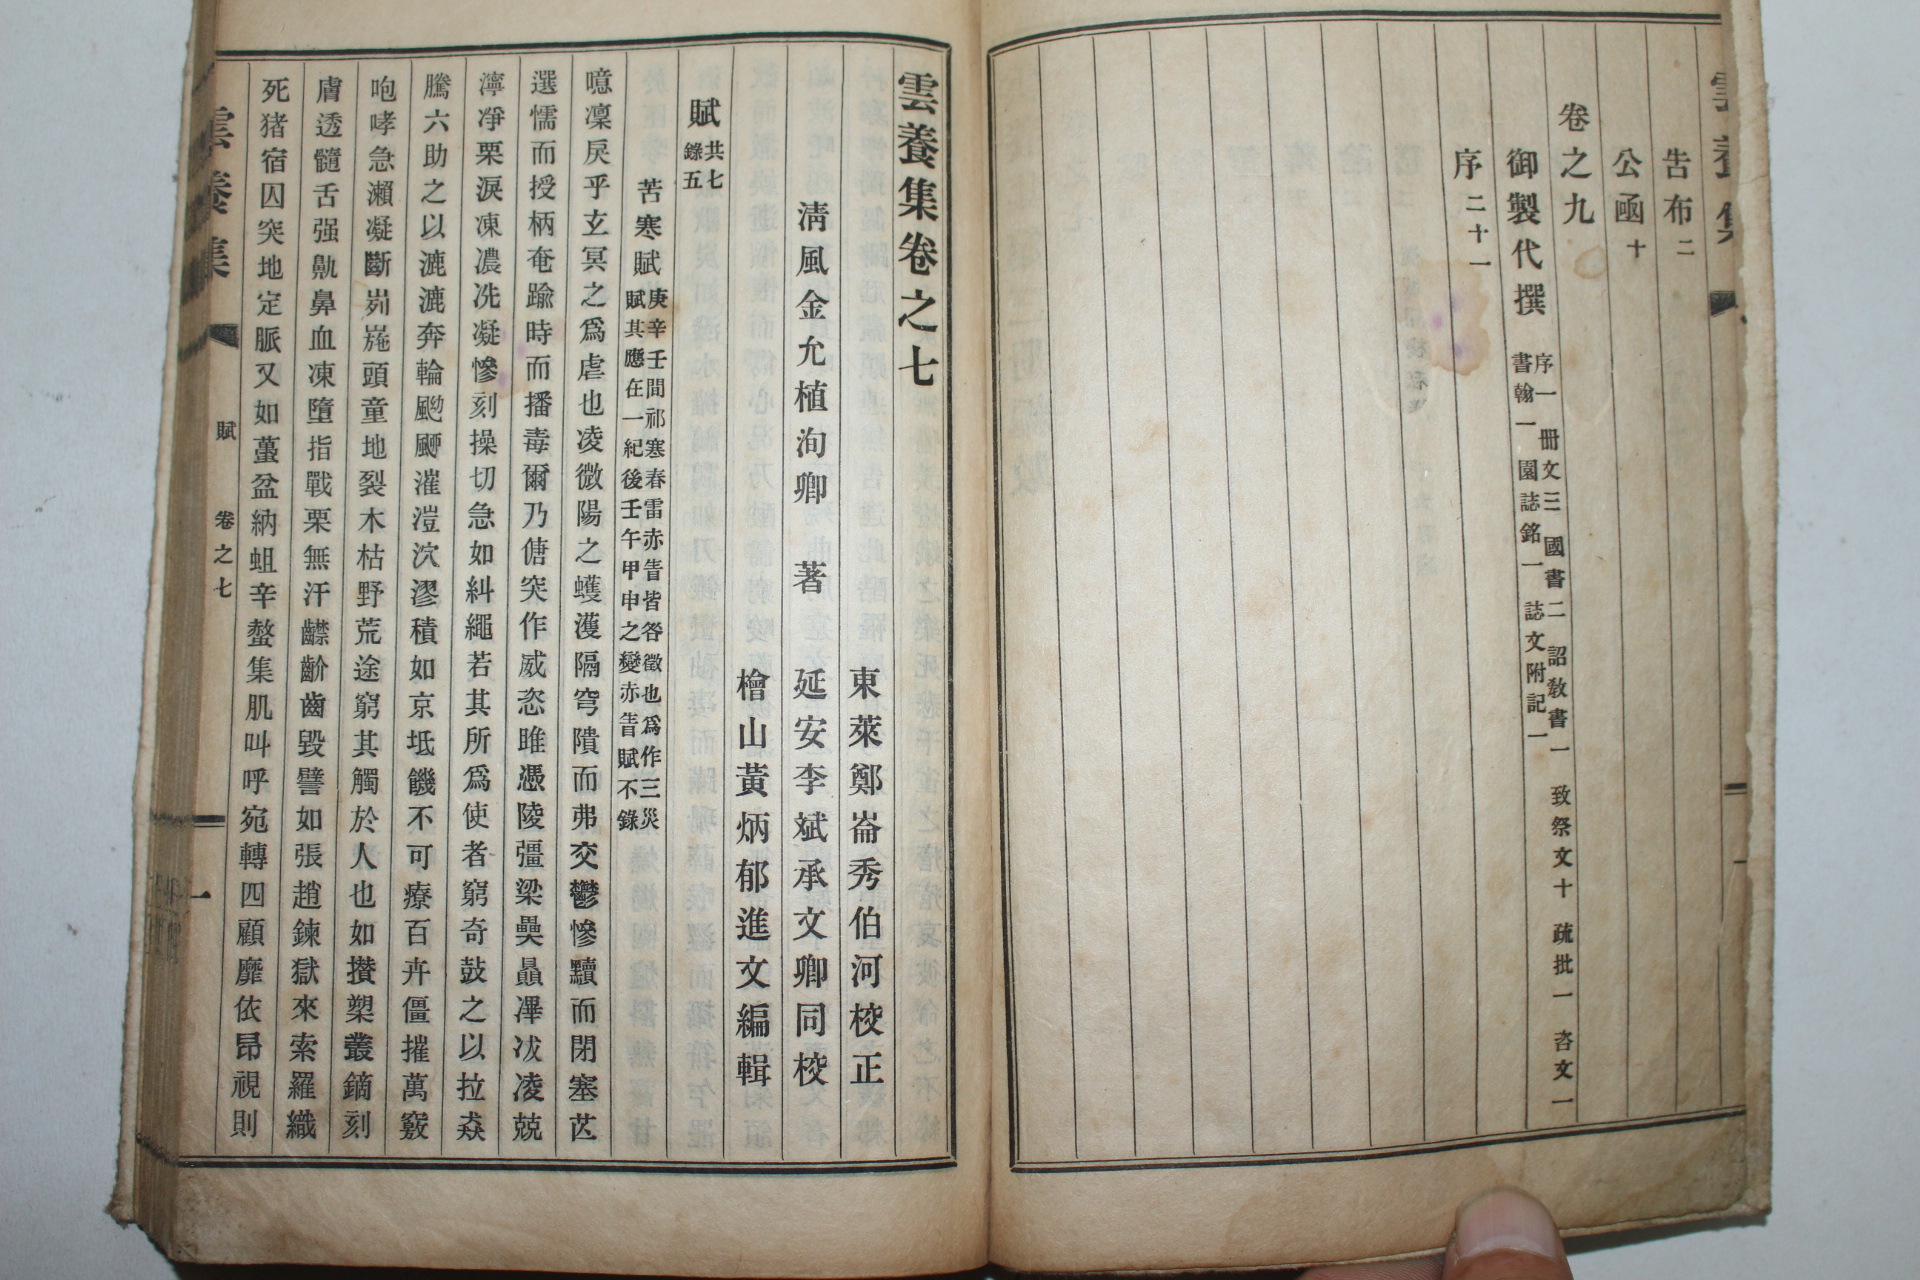 雲養集
告布二
公函十
卷之九
御製代撰 序一 冊文三 國書二 詔敎書一 致祭文十 疏批一 咨文一 書翰一 園誌銘一 誌文附記一
序二十一
雲養集卷之七
東萊鄭崙秀伯河校正
淸風金允植洵卿 著 延安李斌承文卿同校
檜山黃炳郁進文編輯
賦共七錄五
苦寒賦庚辛壬間祁寒春雷赤眚皆咎徵也爲作三災賦其應在一紀後壬午甲申之變赤眚賦不錄
噫凜戾乎玄冥之爲虐也凌微陽之蠖濩隔穹隤而弗交鬱慘黷而閉塞茋
選懦而授柄奄踰時而播毒爾乃傏突作威恣雎憑陵彊梁奰贔滭冹凌兢
濘凈栗淚凍濃冼凝慘刻操切急如糾繩若其所爲使者窮奇鼓之以拉猋
騰六助之以漉漉奔輪颮䬙漼溰泬漻積如京坻饑不可療百卉僵摧萬竅
咆哮急瀨凝斷峛崺頭童地裂木枯野荒途窮其觸於人也如攅槊叢鏑刻
膚透髓舌强鼽鼻血凍墮指戰栗無汗齽齘齒毀譬如張趙鍊獄來索羅織
死猪宿囚突地定脈又如蠆盆納蛆辛螫集肌叫呼宛轉四顧靡依昂視則
雲養集 賦 卷之七 一